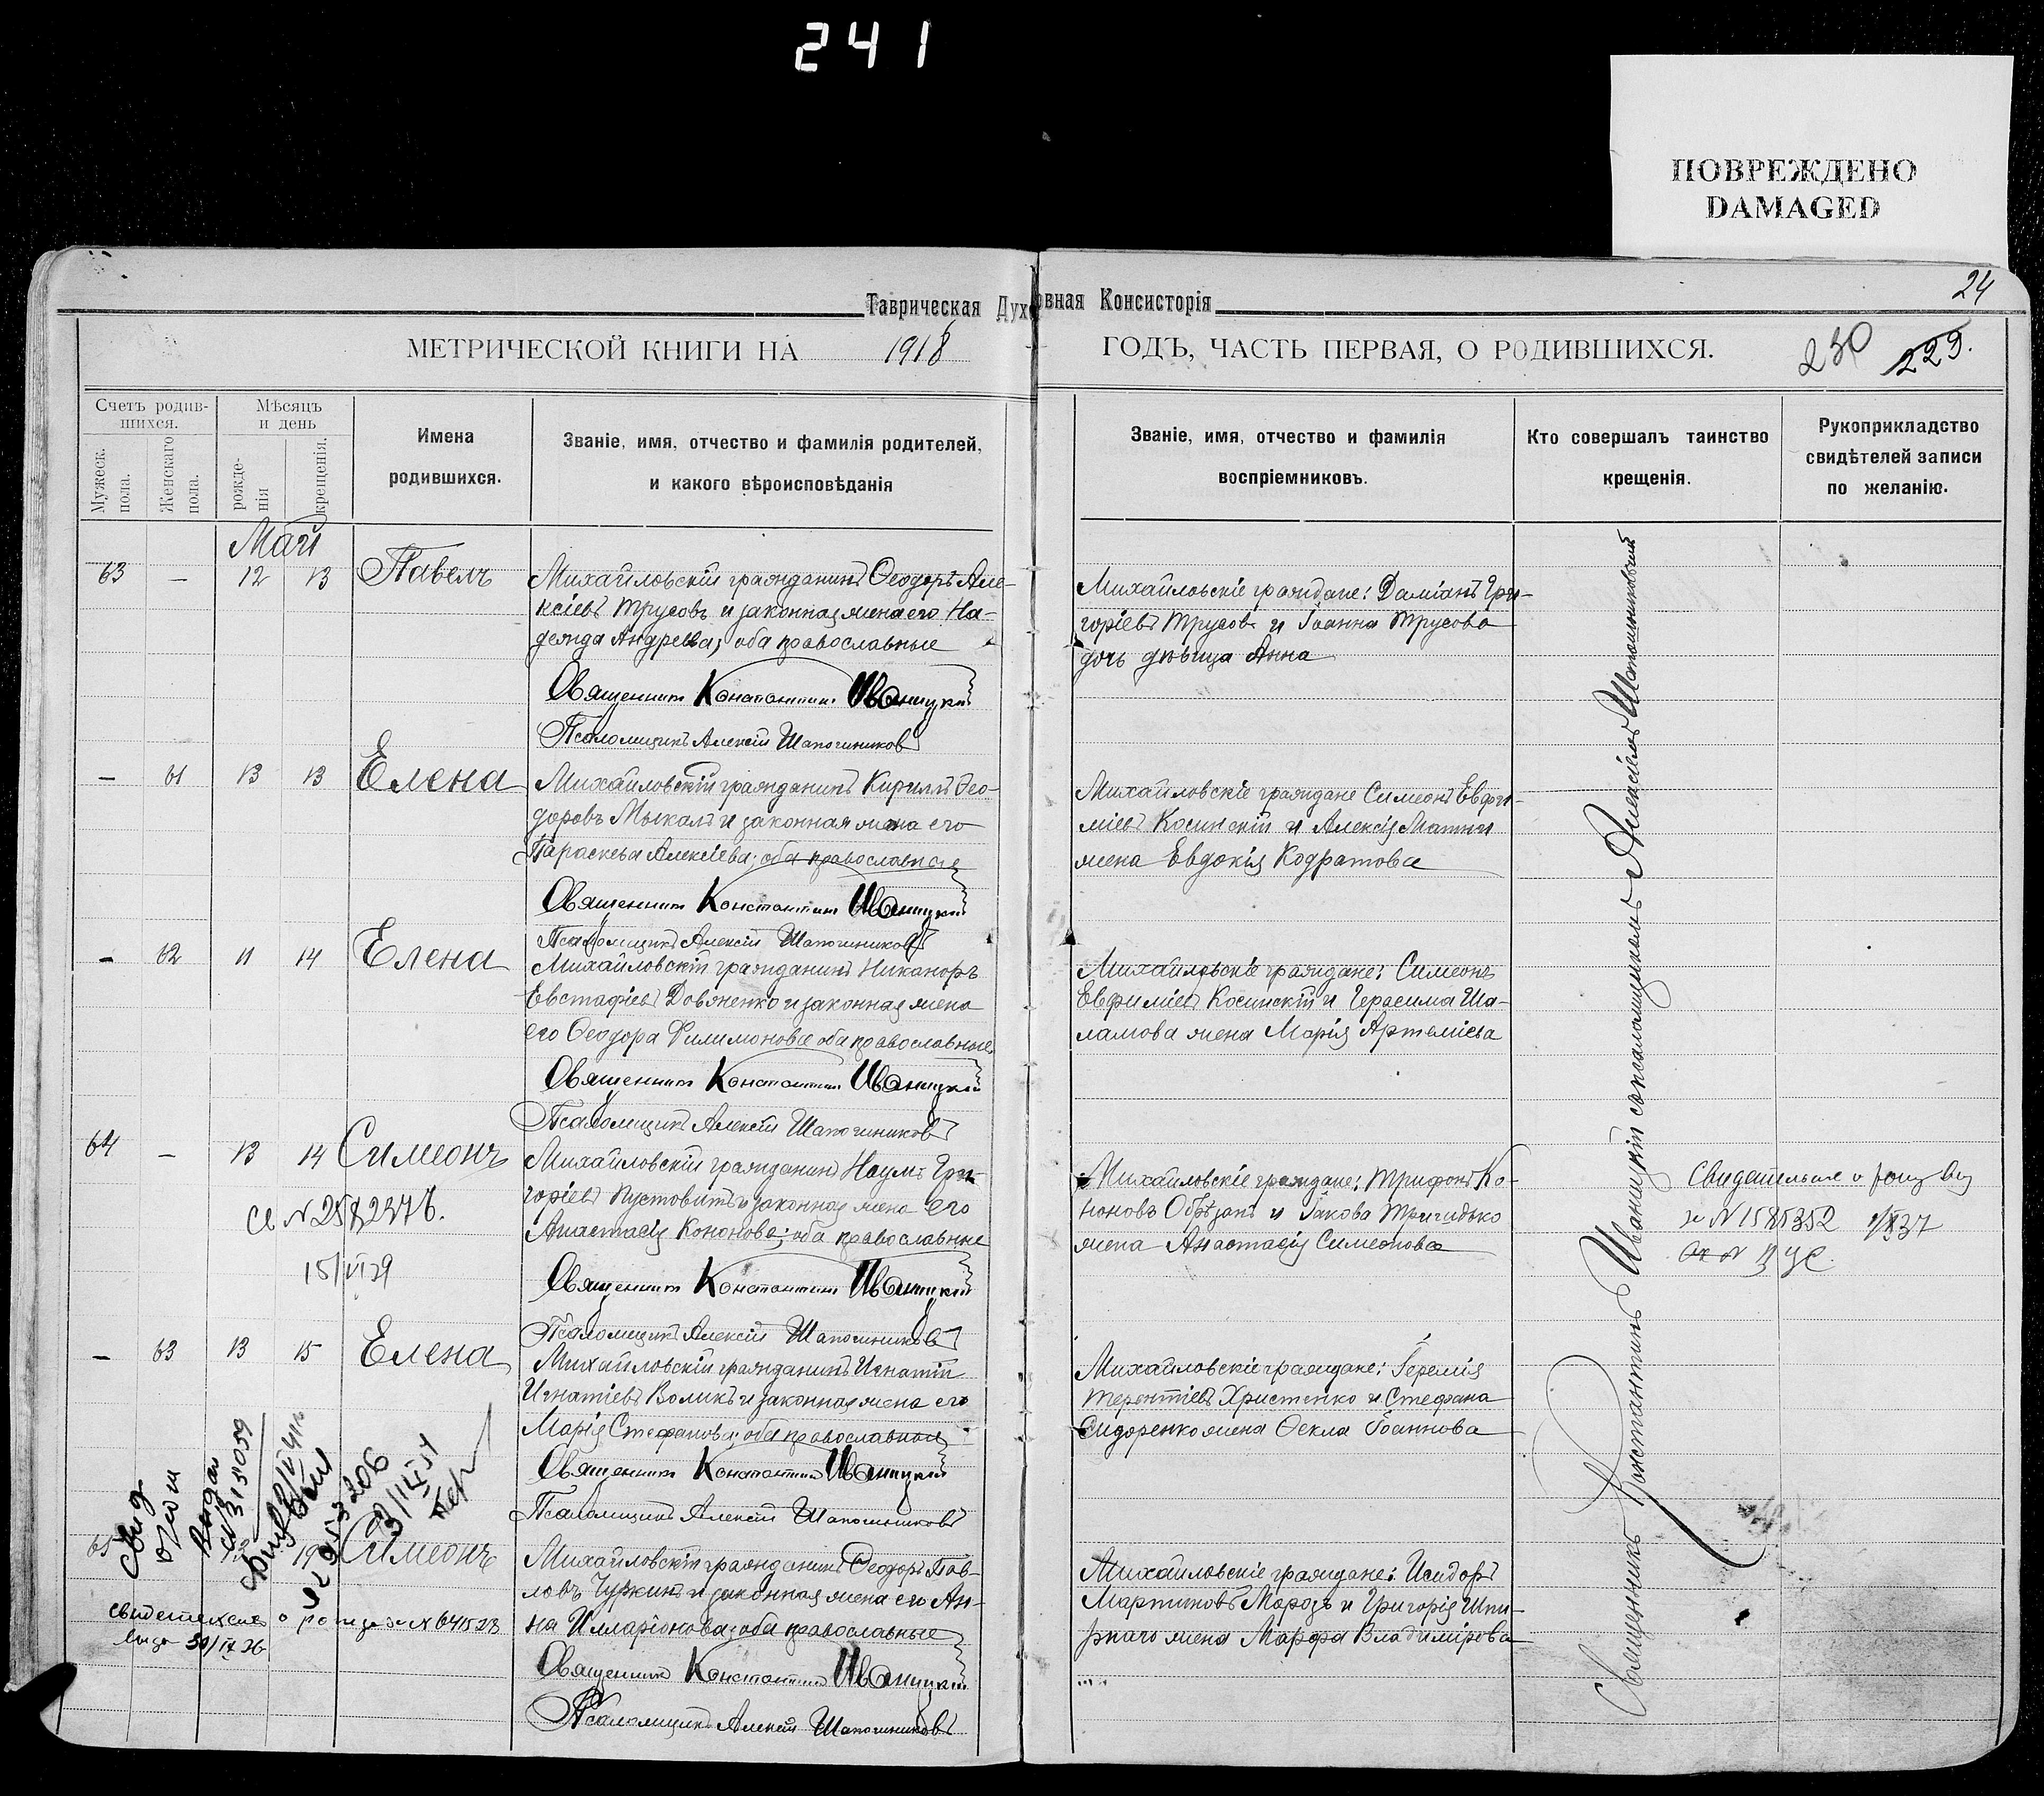 241
ПОВРЕЖДЕНО
DAMAGED
24
Таврическая Духовная Консисторія
МЕТРИЧЕСКОЙ КНИГИ НА 1918 ГОДЪ, ЧАСТЬ ПЕРВАЯ, О РОДИВШИХСЯ.
230 229.
Счетъ родив-
шихся.
Мужеск. пола.
Женскаго пола.
Мѣсяцъ
и день
рожде-
нія
крещенія.
Имена
родившихся.
Званіе, имя, отчество и фамилія родителей,
и какого вѣроисповѣданія
Званіе, имя, отчество и фамилія
воспріемниковъ.
Кто совершалъ таинство
крещенія.
Рукоприкладство
свидѣтелей записи
по желанію.
Май
63 — 12 13 Павелъ
Михайловскій гражданинъ Ѳеодоръ Але-
ксіевъ Трусовъ и законная жена его На-
дежда Андреева; оба православные
Священникъ Константинъ Иваницкій
Псаломщикъ Алексій Шапошниковъ
Михайловскіе граждане: Даміанъ Гри-
горіевъ Трусовъ и Іоанна Трусова
дочь дѣвица Анна
— 61 13 13 Елена
Михайловскій гражданинъ Кириллъ Ѳео-
доровъ Мыкалъ и законная жена его
Параскева Алексіева; оба православные
Священникъ Константинъ Иваницкій
Псаломщикъ Алексій Шапошниковъ
Михайловскіе граждане Симеонъ Евфи-
міевъ Косинскій и Алексія Махни
жена Евдокія Кодратова
— 62 11 14 Елена
Михайловскій гражданинъ Никаноръ
Евстафіевъ Довженко и законная жена
его Ѳеодора Филимонова оба православные
Священникъ Константинъ Иваницкій
Псаломщикъ Алексій Шапошниковъ
Михайловскіе граждане: Симеонъ
Евфиміевъ Косинскій и Герасима Ша-
ламова жена Марія Артеміева
64 — 13 14 Симеонъ
Михайловскій гражданинъ Наумъ Гри-
горіевъ Пустовитъ и законная жена его
Анастасія Кононова; оба православные
Священникъ Константинъ Иваницкій
Псаломщикъ Алексій Шапошниковъ
15/VI 29
Михайловскіе граждане: Трифонъ Ко-
ноновъ Обрѣзанъ и Іакова
жена Анастасія Симеонова
N 1585352
— 63 13 15 Елена
Михайловскій гражданинъ Игнатій
Игнатіевъ Воликъ и законная жена его
Марія Стефанова; оба православные
Священникъ Константинъ Иваницкій
Псаломщикъ Алексій Шапошниковъ
Михайловскіе граждане: Іеремія
Терентіевъ Христенко и Стефана
Сидоренко жена Ѳекла Іоаннова
65 Симеонъ
Михайловскій гражданинъ Ѳеодоръ Пав-
ловъ Чуркинъ и законная жена его Ан-
на Илларіонова; оба православные
Священникъ Константинъ Иваницкій
Псаломщикъ Алексій Шапошниковъ
Михайловскіе граждане: Исидоръ
Мартиновъ Морозъ и Григорія
жена Марфа Владимірова
Священникъ Константинъ Иваницкій съ псаломщикомъ Алексіемъ Шапошниковымъ